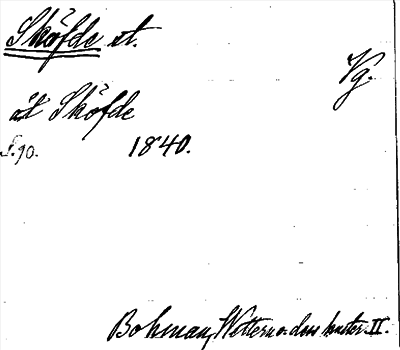 Sköfde st.
Vg.
åt Sköfde
S. 90. 1840.
Bohman, Wettern o. dess kuster. II.